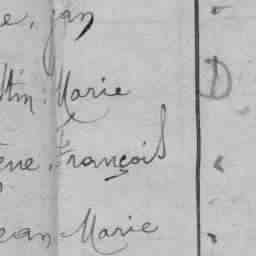 e, jan
ttin Marie D
ene, François "
ean Marie "